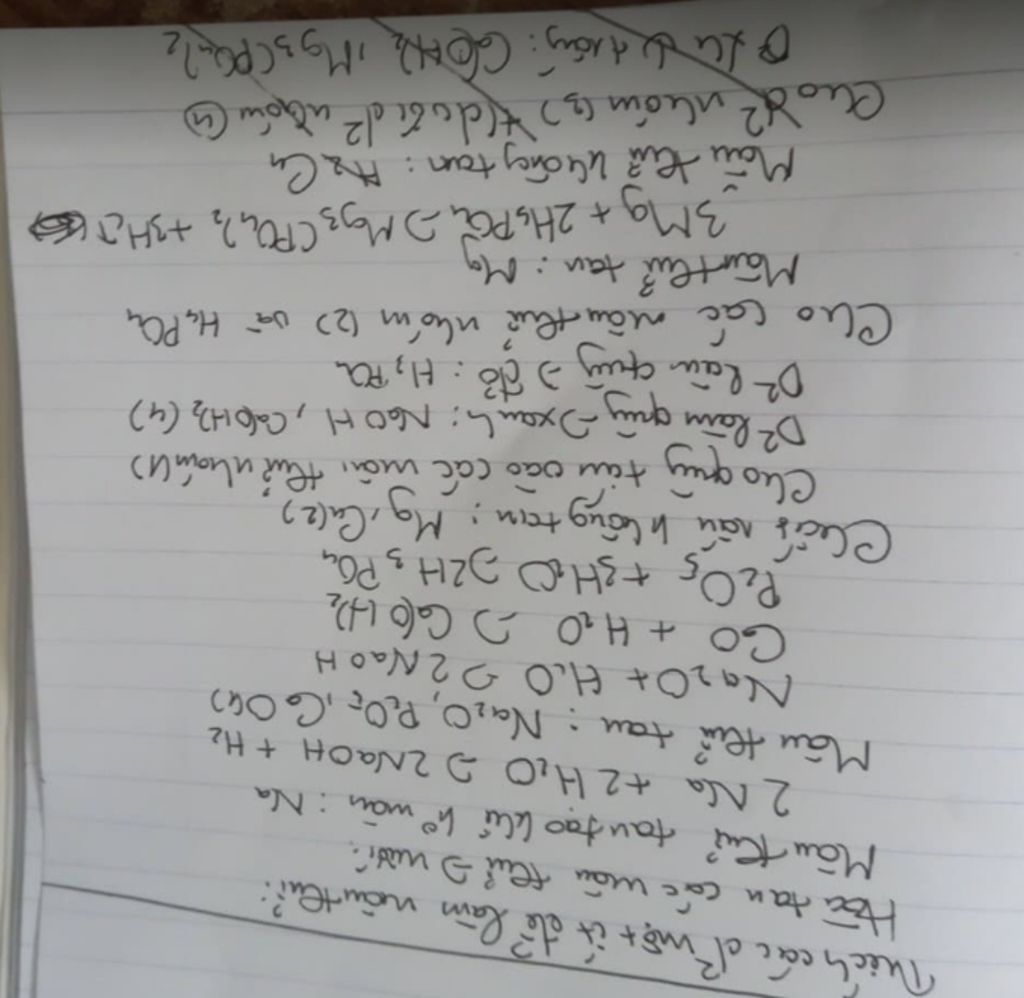 Trích các d² một ít để làm mẫu thử:
Hòa tan các mẫu thử → nước:
Mẫu thử tan tạo khí k° màu: Na
2Na + 2H₂O → 2NaOH + H₂
Mẫu thử tan: Na₂O, P₂O₅, CaO(1)
Na₂O + H₂O → 2NaOH
CaO + H₂O → Ca(OH)₂
P₂O₅ + 3H₂O → 2H₃PO₄
Chất rắn không tan: Mg, Cu(2)
Cho quỳ tím vào các mẫu thử nhóm(1)
D² làm quỳ → xanh: NaOH, Ca(OH)₂ (4)
D² làm quỳ → đỏ: H₃PO₄
Cho các mẫu thử nhóm (2) và H₃PO₄
Mẫu thử tan: Mg
3Mg + 2H₃PO₄ → Mg₃(PO₄)₂ + 3H₂↑
Mẫu thử không tan: Cu
Cho d² nhóm (3) d² nhóm (4)
trắng: Ca(OH)₂, Mg₃(PO₄)₂